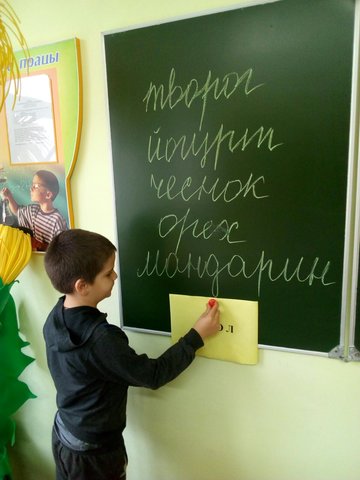 працы
творог
йогурт
чеснок
орех
мандарин
о л